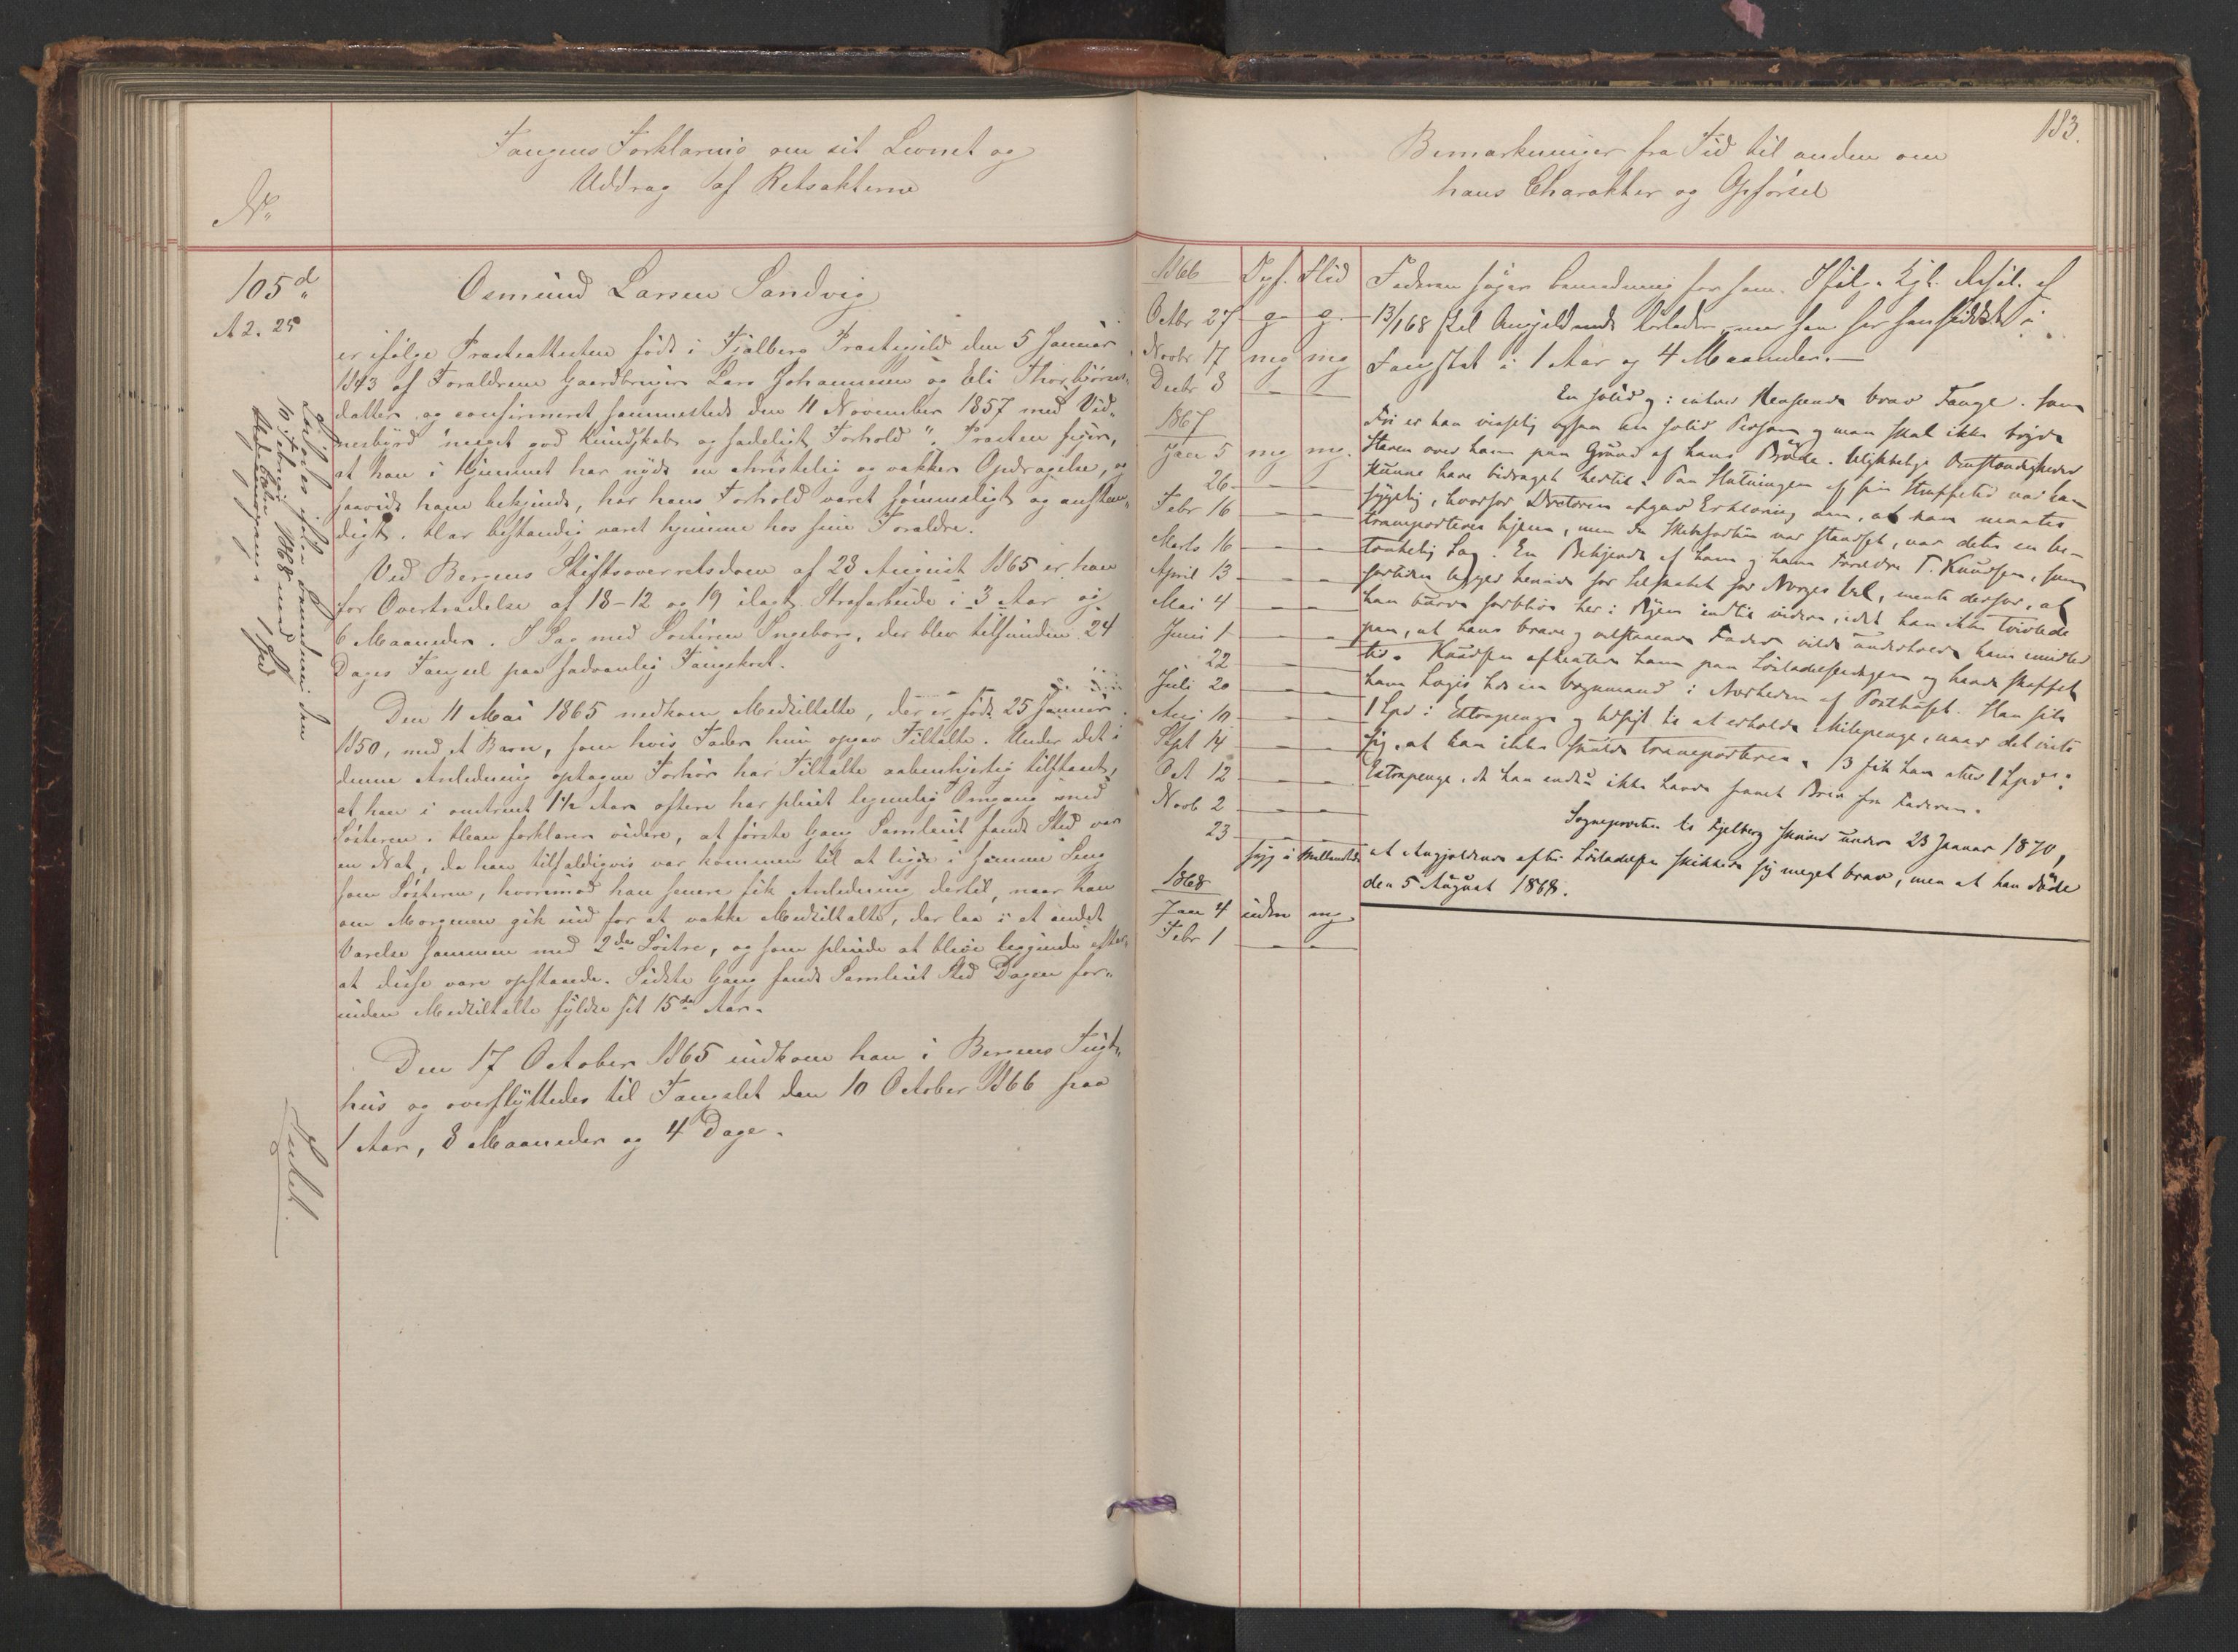 Fangens Forklaring om sit Levnet og
Uddrag af Retsakterne
No
105 d
A 2. 25
Løslades ifølge den
10 Februar 1868 med
1 Spd
Osmund Larsen Sandvig
er ifølge Præsteattesten født i Fjælberg Præstegjeld den 5 Januar
1843 af Forældrene Gaardbruger Lars Johannesen og Eli Thorbjørns-
datter og confirmeret sammesteds den 11 November 1857 med Vid-
nesbyrd "meget god Kundskab og sædeligt Forhold". Præsten siger,
at han i Hjemmet har nydt en christelig og vakker Opdragelse, og
saavidt ham bekjendt, har hans Forhold været sømmeligt og anstæn-
digt. Har bestandig været hjemme hos sine Forældre.
Ved Bergens Stiftsoverretsdom af 28 August 1865 er han
for Overtrædelse af 18-12 og 19 ilagt Strafarbeide i 3 Aar og
6 Maaneder. I Sag med Søsteren Ingeborg, der blev tilfunden 24
Dages Fængsel paa sædvanlig Fangekost.
Den 11 Mai 1865 nedkom Medtiltalte, der er født 25 Januar
1850, med et Barn, som hvis Fader hun opgav Tiltalte. Under det i
denne Anledning optagne Forhør har Tiltalte aabenhjertig tilstaaet,
at han i omtrent 1½ Aar oftere har pleiet legemlig Omgang med
Søsteren. Han forklarer videre, at første Gang Samleiet fandt Sted var
en Nat, da han tilfældigvis var kommen til at ligge i samme Seng
som Søsteren, hvorimod han senere fik Anledning dertil, naar han
om Morgenen gik ind for at vække Medtiltalte, der laa i et andet
Værelse sammen med 2de Søstre, og som pleiede at blive liggende efter-
at disse vare opstaaede. Sidste Gang fandt Samleiet Sted Dagen for-
inden Medtiltalte fyldte sit 15de Aar.
Den 17 October 1865 indkom han i Bergens Tugt-
hus og overflyttedes til Fængslet den 10 October 1866 paa
1 Aar, 8 Maaneder og 4 Dage.
Bemærkninger fra Tid til anden om
hans Charakter og Opførsel
183.
1866 Opf. Flid
Octbr 27 g. g.
Novbr 17 mg mg
Decbr 8 - -
1867
Jan 5 mg mg.
26 - -
Febr 16 - -
Marts 16 - -
April 13 - -
Mai 4 - -
Juni 1 - -
22 - -
Juli 20 - -
Aug 10 - -
Sept 14 - -
Oct 12 - -
Novb 2 - -
23 - -
syg i Mellemtiden
1868
Jan 4 uden mg
Febr 1 - -
Faderen søger benaadning for ham. Ifølge Kgl. Resol. af
13/1 68 skal Angjældende løslades, naar han har hensiddet i
Fængslet i 1 Aar og 4 Maaneder.
En solid og i enhver Henseende brav Fange. Som
fri er han vistnok ogsaa en solid Person og man skal ikke bryde
Staven over ham paa Grund af hans Brøde. Ulykkelige Omstændigheder
kunne have bidraget hertil. Paa Slutningen af sin Straffetid var han
sygelig, hvorfor Doctoren afgav Erklæring om, at han maatte
transporteres hjem, men da Skibsfarten var standset, var dette en be-
tænkelig Sag. En Bekjendt af ham og hans Forældre T. Knudsen, som
fortiden ligger herinde for Selskabet for Norges Vel, mente derfor, at
han burde forblive her i Byen indtil videre, idet han ikke tvivlede
paa, at hans brave og velstaaende Fader vilde underholde ham imidler-
tid. Knudsen afhentede ham paa Løsladelsesdagen og havde skaffet
ham Logis hos en Vognmand i Nærheden af Posthuset. Han fik
1 Spd i Extrapenge og Udsigt til at erholde Milepenge, naar det viste
sig, at han ikke skulde transporteres. 13 fik han atter 1 Spd i
Extrapenge, da han endnu ikke havde faaet Brev fra Faderen.
Sognepræsten til Fjelberg skriver under 23 Januar 1870,
at Angjældende efter Løsladelsen skikkede sig meget brav, men at han døde
den 5 August 1868.